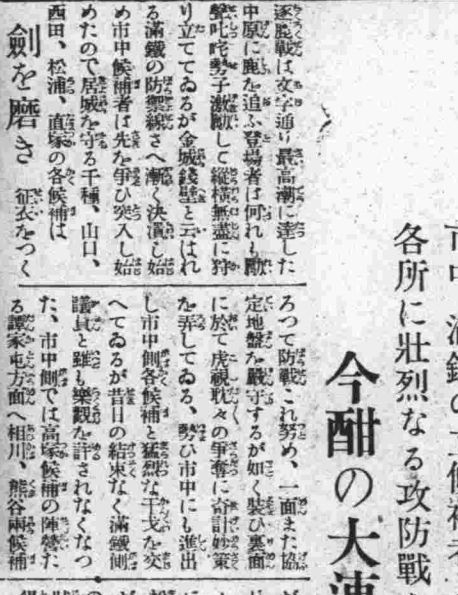 市中、満鉄の
各所に壯烈なる攻防戰
今酣の大連
逐鹿戰は文字通り最高潮に達した
中原に鹿を追ふ登場者は何れも勵
聲叱咤勢子激勵して縱横無盡に狩
り立てゝゐるが金城鐵壁と云はれ
る滿鐵の防禦線さへ漸く決潰し始
め市中候補者は先を爭ひ突入し始
めたので居城を守る千種、山口、
西田、松浦、直塚の各候補は
劍を磨き 征衣をつく
ろつて防戰これ努め、一面また協
定地盤を嚴守するが如く裝ひ裏面
に於て虎視耽々の爭奪に奇計妙策
を弄してゐる、勢ひ市中にも進出
し市中側各候補と猛烈な干戈を交
へてゐるが昔日の結束なく滿鐵側
議員と雖も樂觀を許されなくなつ
た、市中側では高塚候補の陣營た
る譚家屯方面へ相川、熊谷兩候補